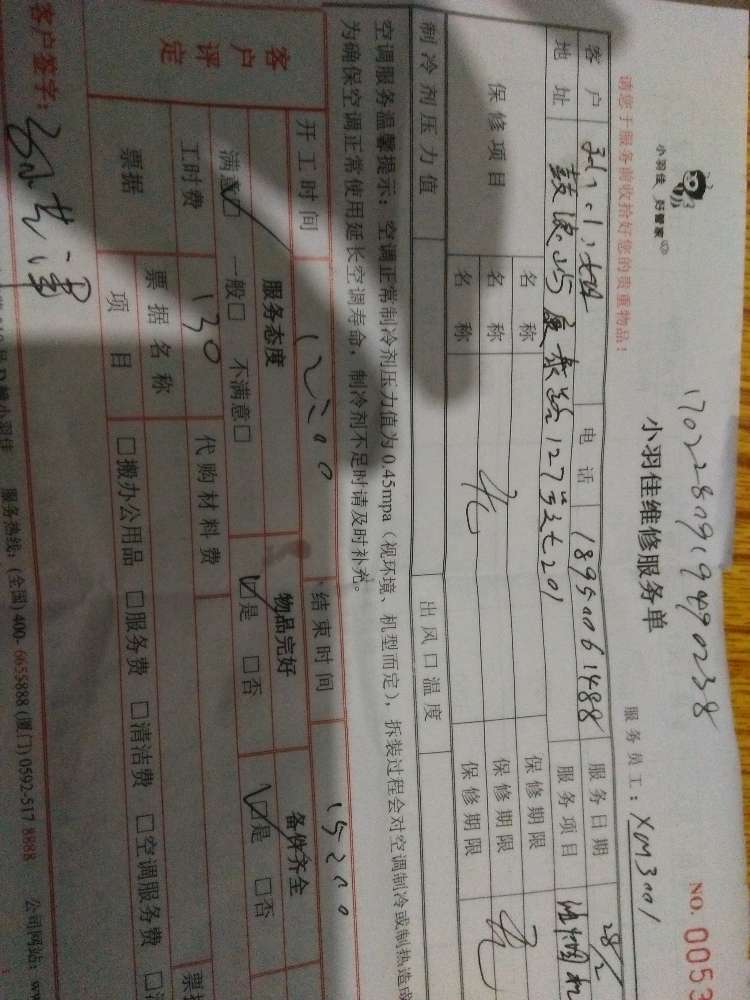 小羽佳 好管家
1702280919490238
小羽佳维修服务单
NO. 0053
请您于服务前收拾好您的贵重物品！
服务员工：XM3001
客户 电话 18950061488 服务日期 28/2
地址 鼓浪屿 127号 201 服务项目
保修项目 名称 保修期限
名称 无 保修期限 无
名称 保修期限
制冷剂压力值 出风口温度
空调服务温馨提示：空调正常制冷剂压力值为0.45mpa（视环境、机型而定），拆装过程会对空调制冷或制热造成
为确保空调正常使用延长空调寿命，制冷剂不足时请及时补充。
开工时间 12:00 结束时间 15:00
客户评定 服务态度 物品完好 备件齐全
满意□ 一般□ 不满意□ □是 □否 □是 □否
工时费 130 代购材料费
票据 票据名称 票
项目 □搬办公用品 □服务费 □清洁费 □空调服务费
客户签字：
小羽佳 服务热线：(全国)400-6655888 (厦门)0592-517 8888 公司网站：w